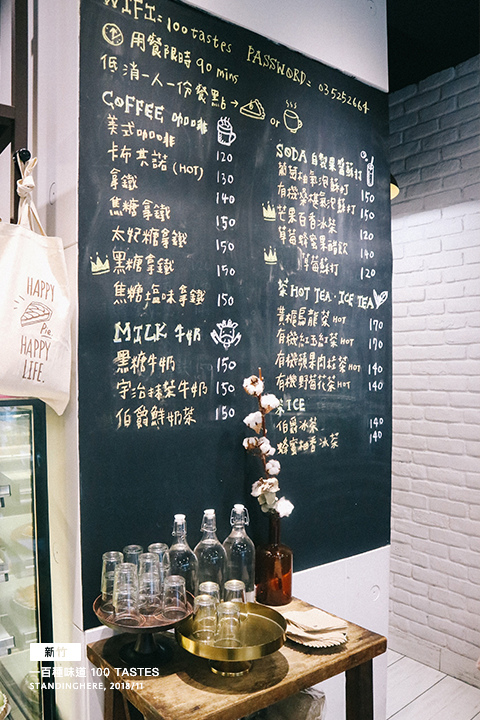 WIFI = 100tastes PASSWORD = 035252664
① 用餐限時 90 mins
低消一人一份餐點 → or
COFFEE 咖啡
美式咖啡 120
卡布其諾 (HOT) 130
拿鐵 140
焦糖拿鐵 150
太妃糖拿鐵 150
黑糖拿鐵 150
焦糖塩味拿鐵 150
MILK 牛奶
黑糖牛奶 150
宇治抹茶牛奶 150
伯爵鮮奶茶 150
SODA 自製果醬蘇打
葡萄柚氣泡蘇打 150
有機桑椹氣泡蘇打 150
芒果百香冰茶 120
草莓蜂蜜果醋飲 140
草莓蘇打 120
茶 HOT TEA · ICE TEA
黃梔烏龍茶 HOT 170
有機紅玉紅茶 HOT 170
有機蘋果肉桂茶 HOT 140
有機野莓花茶 HOT 140
茶 ICE
伯爵冰茶 140
蜂蜜柚香冰茶 140
HAPPY
Pie
HAPPY
LIFE.
新竹
一百種味道 100 TASTES
STANDINGHERE, 2018/11